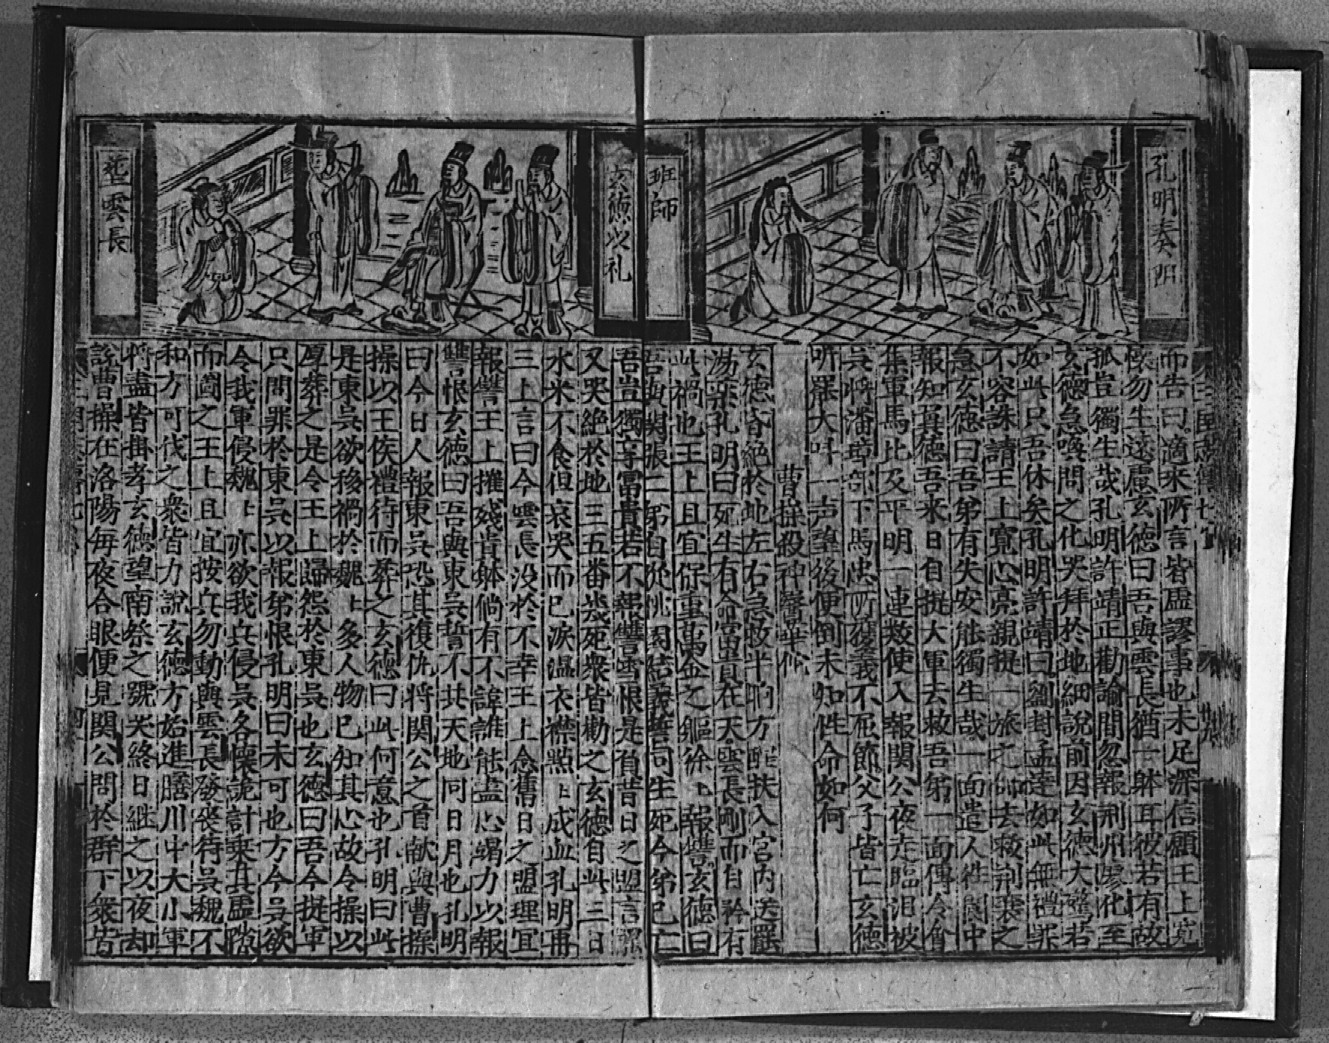 孔明奏阴
班師
而告曰適來所言皆虛謬事也未足深信願王上寬
懷勿生遠慮玄德曰吾與雲長猶一躰耳彼若有故
孤豈獨生哉孔明許靖正勸諭間忽報荆州廖化至
玄德急喚問之化哭拜於地細說前因玄德大驚若
如此只吾休矣孔明許靖曰劉封孟達如此無禮罪
不容誅請王上寬心亮親提一旅之師去救荆襄之
急玄德曰吾弟有失安能獨生哉一面遣人徃閬中
報知翼德吾來日自提大軍去救吾弟一面傳令會
集軍馬比及平明一連数使入報関公夜走臨沮被
吳將潘璋部下馬忠所獲義不屈節父子皆亡玄德
听罷大叫一声望後便倒未知性命如何
曹操殺神醫華佗
玄德昏絕於地左右急救半晌方醒扶入宮内送罷
湯藥孔明曰死生有命富貴在天雲長剛而自矜有
此禍也王上且宜保重萬金之軀徐〻報讐玄德曰
吾與関張二弟自從桃園結義誓同生死今弟已亡
玄德以礼
塟雲長
吾豈獨享富貴若不報讐雪恨是負昔日之盟言罷
又哭絕於地三五番幾死衆皆勸之玄德自此三日
水米不食但哀哭而已淚濕衣襟點〻成血孔明再
三上言曰今雲長没於不幸王上念舊日之盟理宜
報讐王上摧殘貴躰倘有不諱誰能盡心竭力以報
讐恨玄德曰吾與東吳誓不共天地同日月也孔明
曰今日人報東吳恐其復仇将関公之首献與曹操
操以王侯禮待而葬之玄德曰此何意也孔明曰此
是東吳欲移禍於魏〻多人物已知其心故令操以
厚葬之是令王上歸怨於東吳也玄德曰吾今提軍
只問罪於東吳以報弟恨孔明曰未可也方今吳欲
令我軍侵魏〻亦欲我兵侵吳各懷詭計乘其虛隙
而圖之王上且宜按兵勿動與雲長發喪待吳魏不
和方可伐之衆皆力說玄德方始進膳川中大小軍
将盡皆掛孝玄德望南祭之號哭終日継之以夜却
說曹操在洛陽每夜合眼便見関公問於群下衆皆